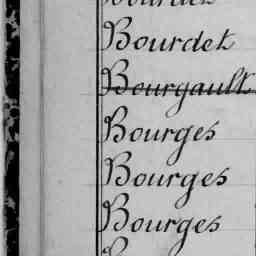 Bourdet
Bourdet
Bourgault
Bourges
Bourges
Bourges